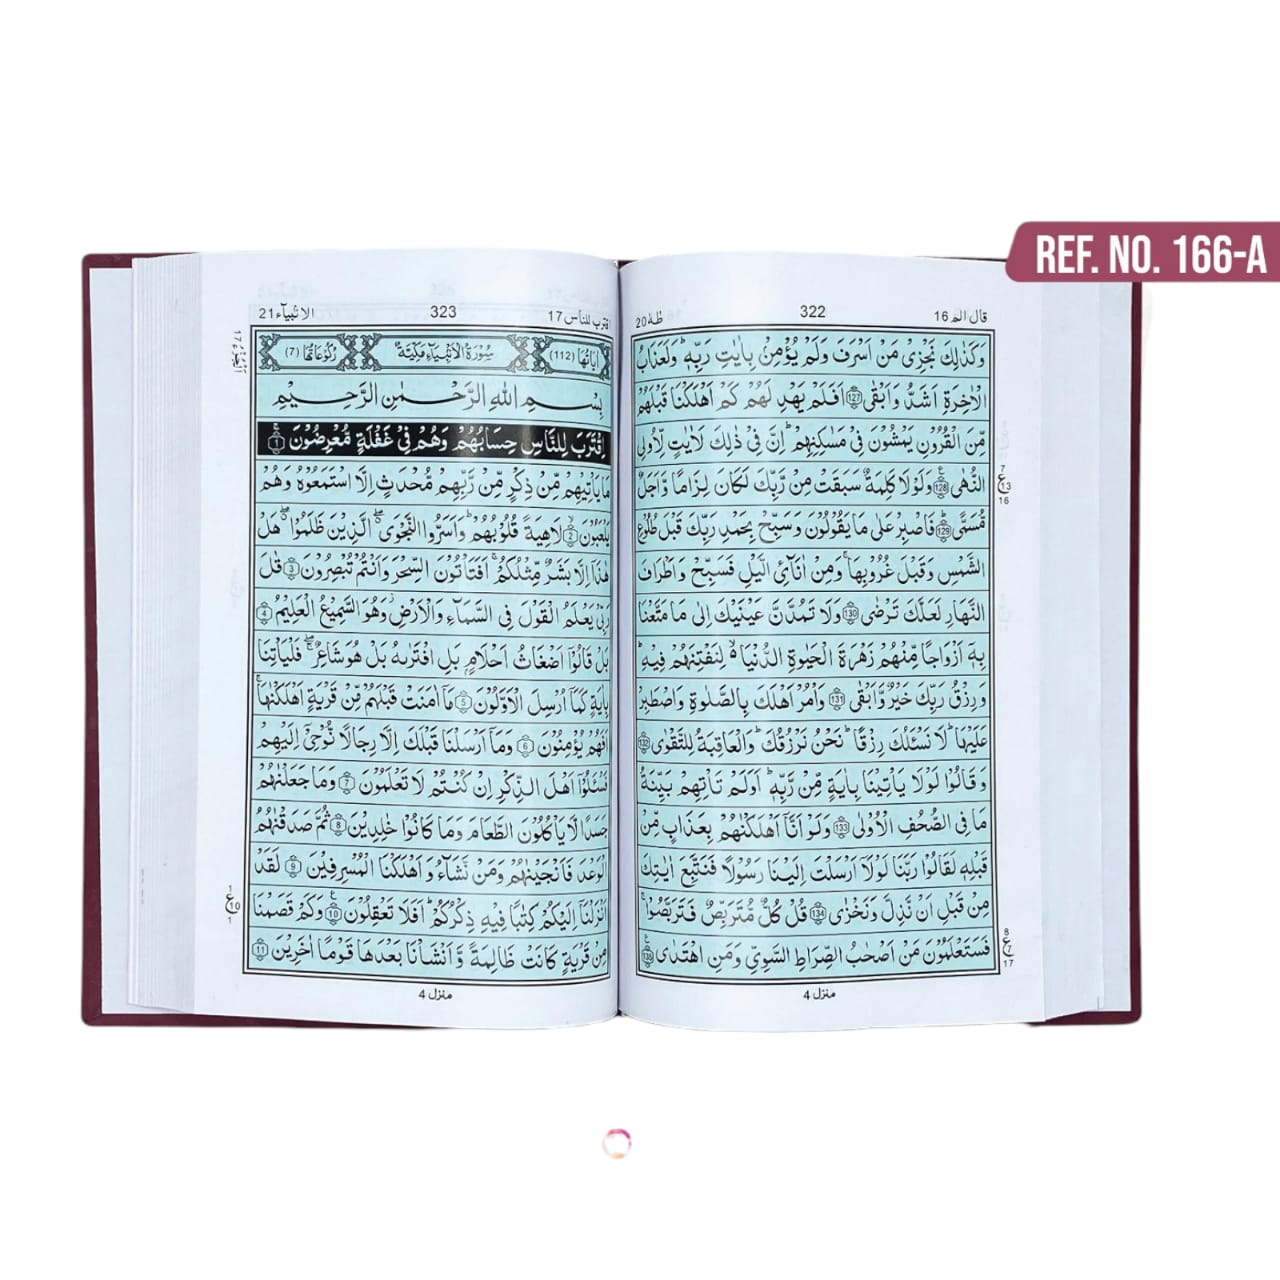 REF. NO. 166-A
قال الم 16
322
طه 20
وَكَذٰلِكَ نَجْزِیْ مَنْ اَسْرَفَ وَلَمْ یُؤْمِنْ بِاٰیٰتِ رَبِّهٖ ؕ وَلَعَذَابُ
الْاٰخِرَةِ اَشَدُّ وَاَبْقٰی 127 اَفَلَمْ یَهْدِ لَهُمْ كَمْ اَهْلَكْنَا قَبْلَهُمْ
مِّنَ الْقُرُوْنِ یَمْشُوْنَ فِیْ مَسٰكِنِهِمْ ؕ اِنَّ فِیْ ذٰلِكَ لَاٰیٰتٍ لِّاُولِی
النُّهٰی 128 وَلَوْلَا كَلِمَةٌ سَبَقَتْ مِنْ رَّبِّكَ لَكَانَ لِزَامًا وَّاَجَلٌ
مُّسَمًّی 129 فَاصْبِرْ عَلٰی مَا یَقُوْلُوْنَ وَسَبِّحْ بِحَمْدِ رَبِّكَ قَبْلَ طُلُوْعِ
الشَّمْسِ وَقَبْلَ غُرُوْبِهَا ۚ وَمِنْ اٰنَآئِ الَّیْلِ فَسَبِّحْ وَاَطْرَافَ
النَّهَارِ لَعَلَّكَ تَرْضٰی 130 وَلَا تَمُدَّنَّ عَیْنَیْكَ اِلٰی مَا مَتَّعْنَا
بِهٖۤ اَزْوَاجًا مِّنْهُمْ زَهْرَةَ الْحَیٰوةِ الدُّنْیَا ۙ لِنَفْتِنَهُمْ فِیْهِ ؕ
وَرِزْقُ رَبِّكَ خَیْرٌ وَّاَبْقٰی 131 وَاْمُرْ اَهْلَكَ بِالصَّلٰوةِ وَاصْطَبِرْ
عَلَیْهَا ؕ لَا نَسْئَلُكَ رِزْقًا ؕ نَحْنُ نَرْزُقُكَ ؕ وَالْعَاقِبَةُ لِلتَّقْوٰی 132
وَقَالُوْا لَوْلَا یَاْتِیْنَا بِاٰیَةٍ مِّنْ رَّبِّهٖ ؕ اَوَلَمْ تَاْتِهِمْ بَیِّنَةُ
مَا فِی الصُّحُفِ الْاُوْلٰی 133 وَلَوْ اَنَّاۤ اَهْلَكْنٰهُمْ بِعَذَابٍ مِّنْ
قَبْلِهٖ لَقَالُوْا رَبَّنَا لَوْلَاۤ اَرْسَلْتَ اِلَیْنَا رَسُوْلًا فَنَتَّبِعَ اٰیٰتِكَ
مِنْ قَبْلِ اَنْ نَّذِلَّ وَنَخْزٰی 134 قُلْ كُلٌّ مُّتَرَبِّصٌ فَتَرَبَّصُوْا ۚ
فَسَتَعْلَمُوْنَ مَنْ اَصْحٰبُ الصِّرَاطِ السَّوِیِّ وَمَنِ اهْتَدٰی 135
7
ع 13
16
8
ع 7
17
منزل 4
اقترب للناس 17
323
الانبیآء 21
اٰیَاتُهَا (112)
سُوْرَةُ الْاَنْبِیَآءِ مَكِّیَّةٌ
رُكُوْعَاتُهَا (7)
بِسْمِ اللهِ الرَّحْمٰنِ الرَّحِیْمِ
اِقْتَرَبَ لِلنَّاسِ حِسَابُهُمْ وَهُمْ فِیْ غَفْلَةٍ مُّعْرِضُوْنَ 1
مَا یَاْتِیْهِمْ مِّنْ ذِكْرٍ مِّنْ رَّبِّهِمْ مُّحْدَثٍ اِلَّا اسْتَمَعُوْهُ وَهُمْ
یَلْعَبُوْنَ 2 لَاهِیَةً قُلُوْبُهُمْ ؕ وَاَسَرُّوا النَّجْوَی الَّذِیْنَ ظَلَمُوْا هَلْ
هٰذَاۤ اِلَّا بَشَرٌ مِّثْلُكُمْ ۚ اَفَتَاْتُوْنَ السِّحْرَ وَاَنْتُمْ تُبْصِرُوْنَ 3 قٰلَ
رَبِّیْ یَعْلَمُ الْقَوْلَ فِی السَّمَآءِ وَالْاَرْضِ ؗ وَهُوَ السَّمِیْعُ الْعَلِیْمُ 4
بَلْ قَالُوْۤا اَضْغَاثُ اَحْلَامٍ بَلِ افْتَرٰىهُ بَلْ هُوَ شَاعِرٌ ۖ فَلْیَاْتِنَا
بِاٰیَةٍ كَمَاۤ اُرْسِلَ الْاَوَّلُوْنَ 5 مَاۤ اٰمَنَتْ قَبْلَهُمْ مِّنْ قَرْیَةٍ اَهْلَكْنٰهَا ۚ
اَفَهُمْ یُؤْمِنُوْنَ 6 وَمَاۤ اَرْسَلْنَا قَبْلَكَ اِلَّا رِجَالًا نُّوْحِیْۤ اِلَیْهِمْ
فَسْئَلُوْۤا اَهْلَ الذِّكْرِ اِنْ كُنْتُمْ لَا تَعْلَمُوْنَ 7 وَمَا جَعَلْنٰهُمْ
جَسَدًا لَّا یَاْكُلُوْنَ الطَّعَامَ وَمَا كَانُوْا خٰلِدِیْنَ 8 ثُمَّ صَدَقْنٰهُمُ
الْوَعْدَ فَاَنْجَیْنٰهُمْ وَمَنْ نَّشَآءُ وَاَهْلَكْنَا الْمُسْرِفِیْنَ 9 لَقَدْ
اَنْزَلْنَاۤ اِلَیْكُمْ كِتٰبًا فِیْهِ ذِكْرُكُمْ ؕ اَفَلَا تَعْقِلُوْنَ 10 وَكَمْ قَصَمْنَا
مِنْ قَرْیَةٍ كَانَتْ ظَالِمَةً وَّاَنْشَاْنَا بَعْدَهَا قَوْمًا اٰخَرِیْنَ 11
1
ع 10
1
منزل 4